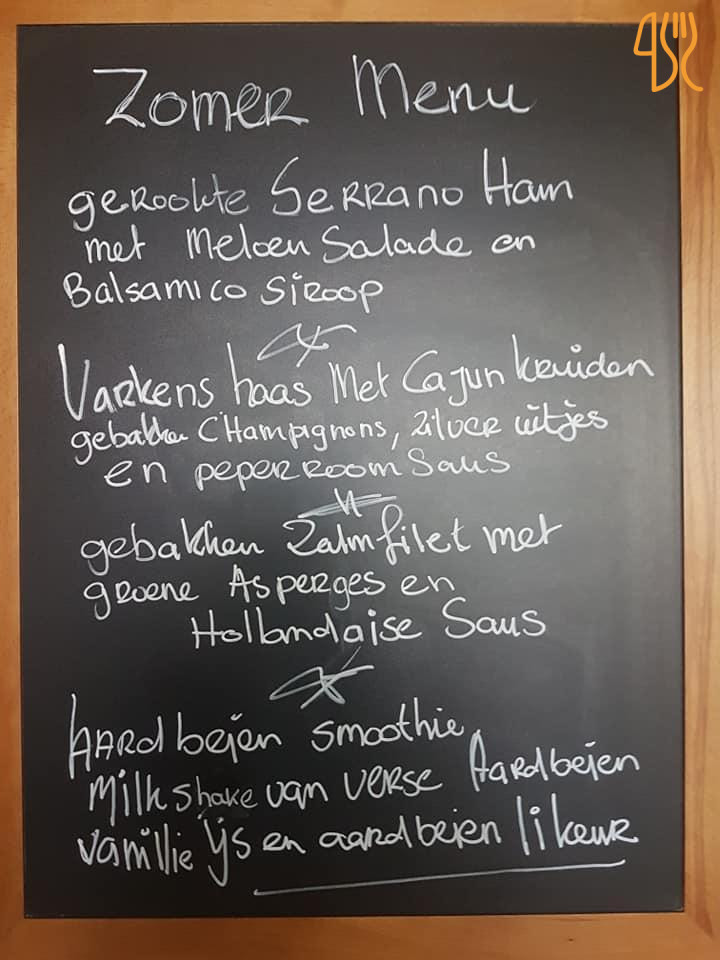 Zomer Menu
gerookte Serrano Ham
met Meloen Salade en
Balsamico Siroop
Varkens haas Met Cajun kruiden
gebakken CHampignons, zilver uitjes
en peperroom Saus
gebakken Zalmfilet met
groene Asperges en
Hollandaise Saus
Aardbeien smoothie
Milkshake van verse Aardbeien
vanillie ijs en aardbeien likeur